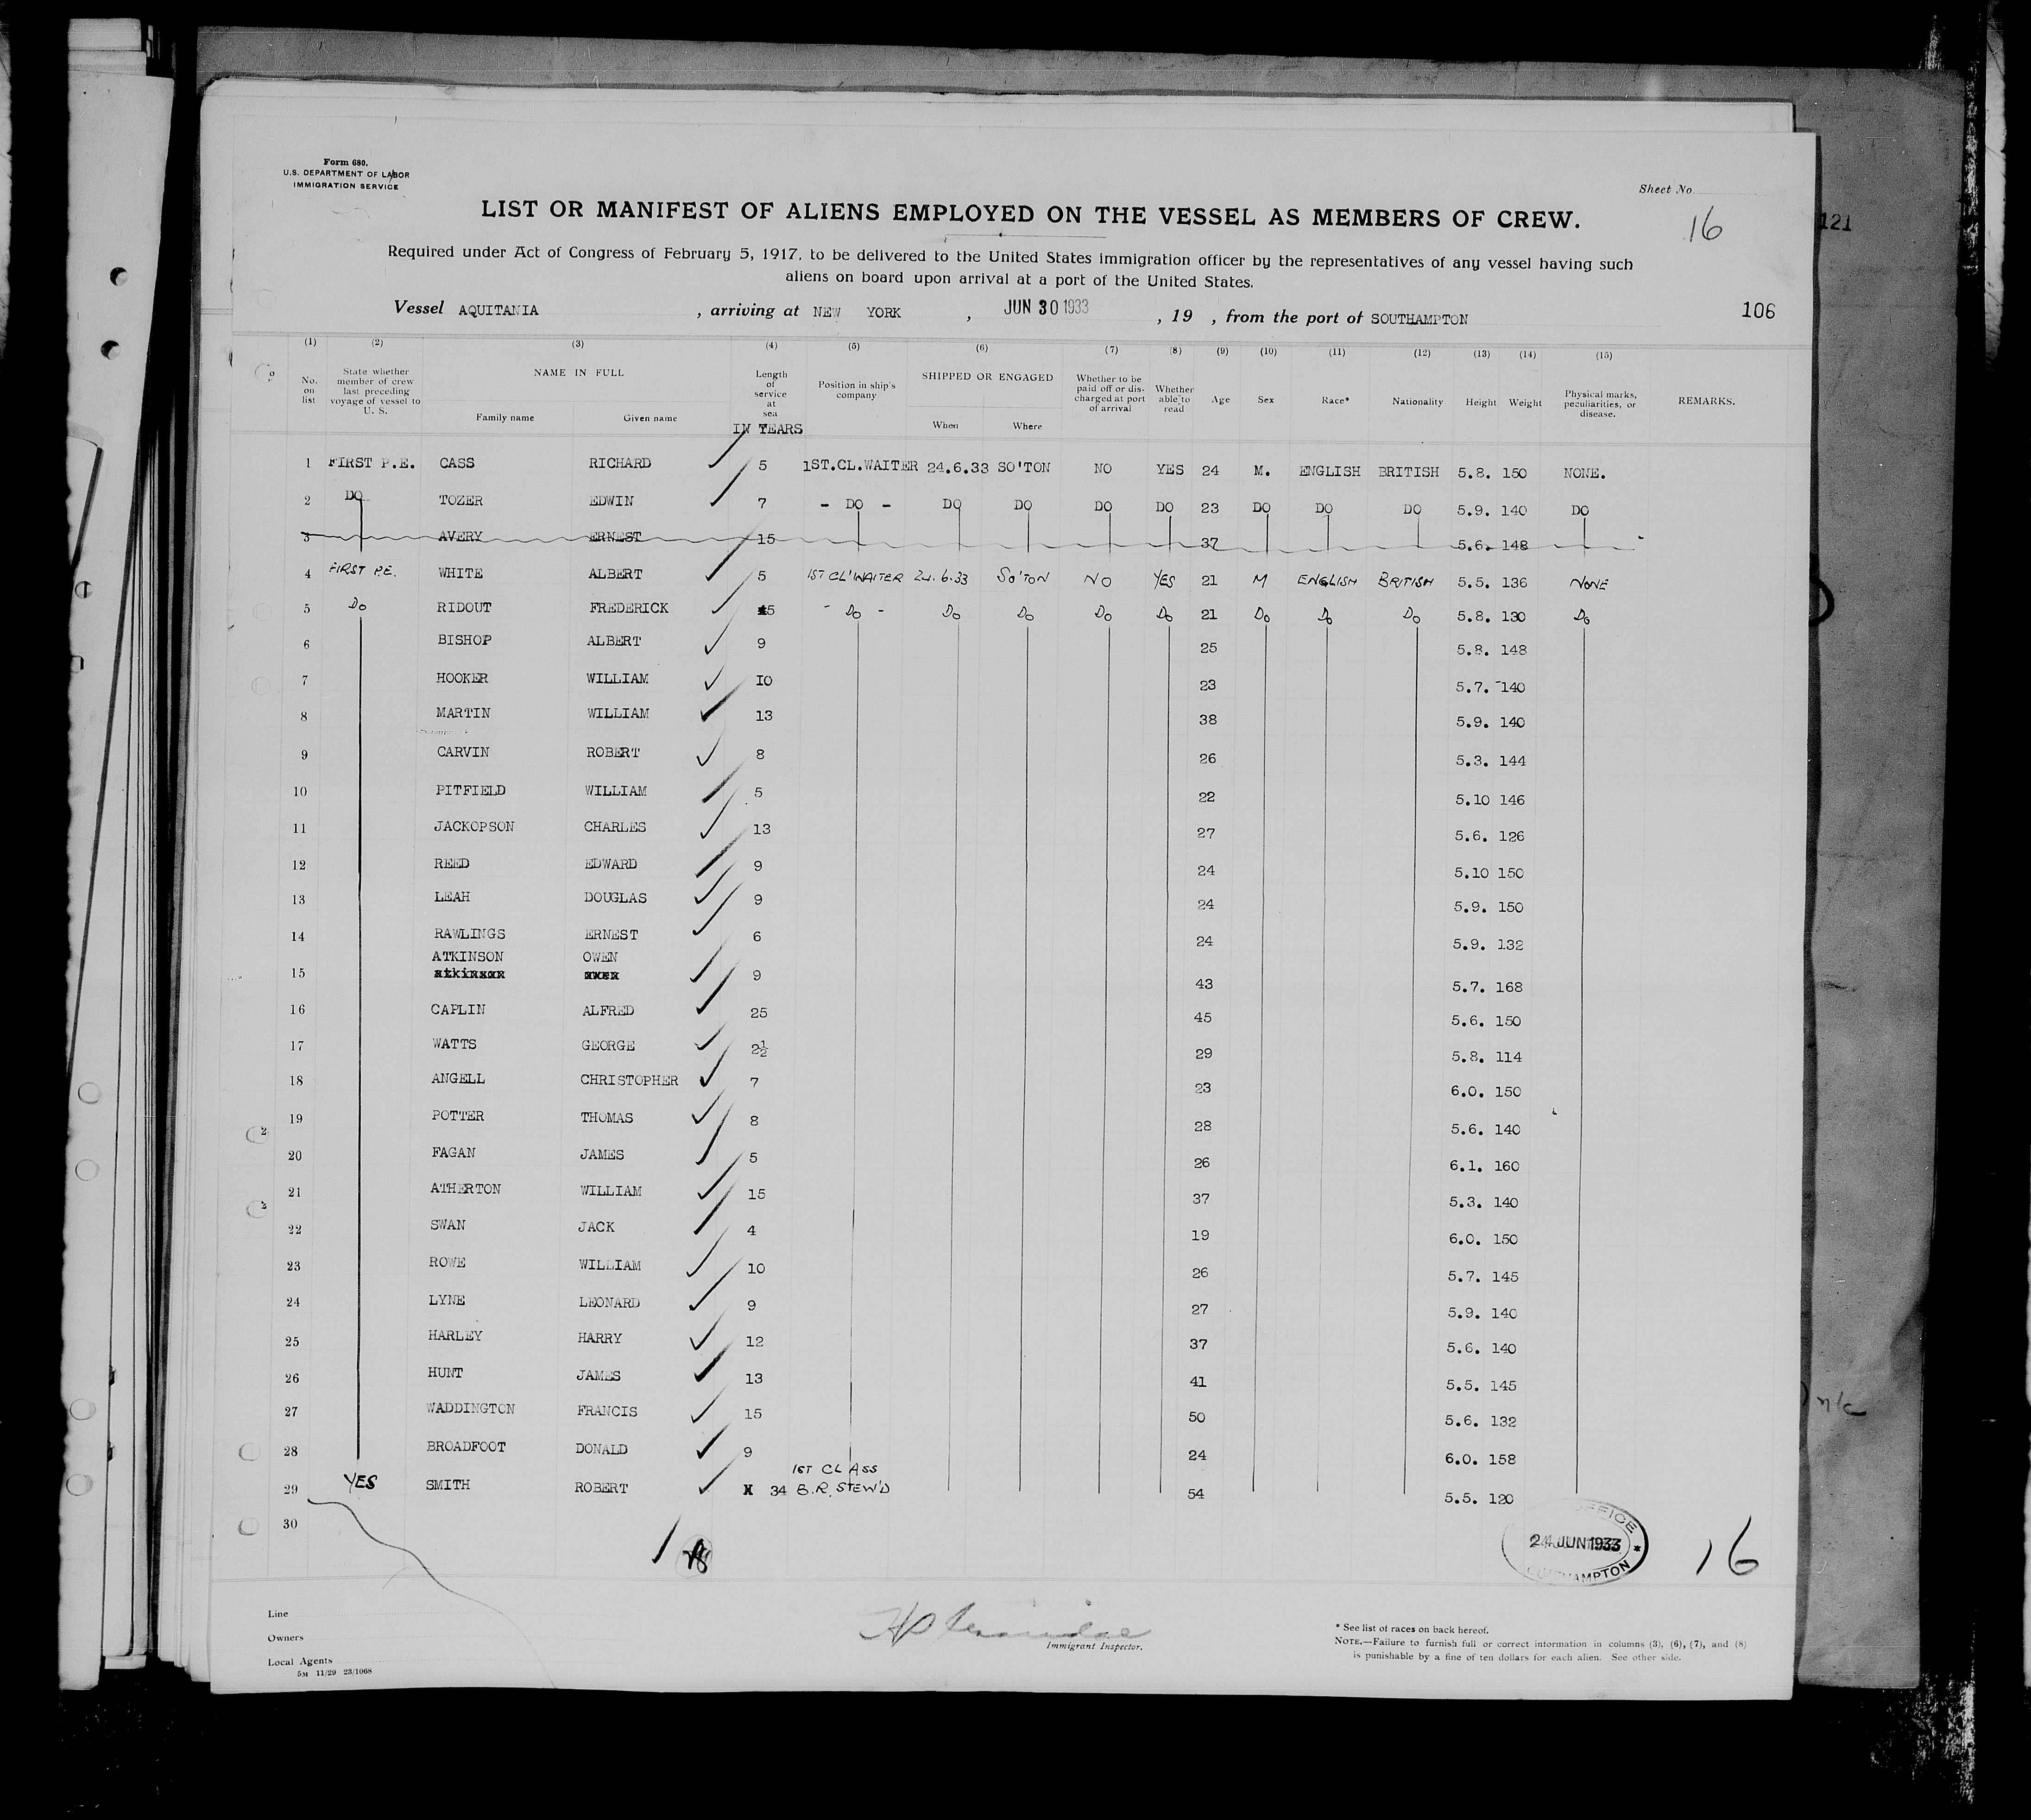 Form 680.
U.S. DEPARTMENT OF LABOR
IMMIGRATION SERVICE
Sheet No.
16
121
LIST OR MANIFEST OF ALIENS EMPLOYED ON THE VESSEL AS MEMBERS OF CREW.
Required under Act of Congress of February 5, 1917, to be delivered to the United States immigration officer by the representatives of any vessel having such
aliens on board upon arrival at a port of the United States.
Vessel AQUITANIA , arriving at NEW YORK , JUN 30 1933 , 19 , from the port of SOUTHAMPTON
106
(1) (2) (3) (4) (5) (6) (7) (8) (9) (10) (11) (12) (13) (14) (15)
No. on list State whether member of crew last preceding voyage of vessel to U. S. NAME IN FULL Family name Given name Length of service at sea IN YEARS Position in ship's company SHIPPED OR ENGAGED When Where Whether to be paid off or discharged at port of arrival Whether able to read Age Sex Race* Nationality Height Weight Physical marks, peculiarities, or disease. REMARKS.
1 FIRST P.E. CASS RICHARD 5 1ST.CL.WAITER 24.6.33 SO'TON NO YES 24 M. ENGLISH BRITISH 5.8. 150 NONE.
2 DO TOZER EDWIN 7 - DO - DO DO DO DO 23 DO DO DO 5.9. 140 DO
3 AVERY ERNEST 15 37 5.6. 148
4 FIRST P.E. WHITE ALBERT 5 1ST CL'WAITER 24.6.33 SO'TON NO YES 21 M ENGLISH BRITISH 5.5. 136 NONE
5 Do RIDOUT FREDERICK 5 - Do - Do Do Do Do 21 Do Do Do 5.8. 130 Do
6 BISHOP ALBERT 9 25 5.8. 148
7 HOOKER WILLIAM 10 23 5.7. 140
8 MARTIN WILLIAM 13 38 5.9. 140
9 CARVIN ROBERT 8 26 5.3. 144
10 PITFIELD WILLIAM 5 22 5.10 146
11 JACKOPSON CHARLES 13 27 5.6. 126
12 REED EDWARD 9 24 5.10 150
13 LEAH DOUGLAS 9 24 5.9. 150
14 RAWLINGS ERNEST 6 24 5.9. 132
ATKINSON OWEN
15 atkinson owen 9 43 5.7. 168
16 CAPLIN ALFRED 25 45 5.6. 150
17 WATTS GEORGE 2½ 29 5.8. 114
18 ANGELL CHRISTOPHER 7 23 6.0. 150
19 POTTER THOMAS 8 28 5.6. 140
20 FAGAN JAMES 5 26 6.1. 160
21 ATHERTON WILLIAM 15 37 5.3. 140
22 SWAN JACK 4 19 6.0. 150
23 ROWE WILLIAM 10 26 5.7. 145
24 LYNE LEONARD 9 27 5.9. 140
25 HARLEY HARRY 12 37 5.6. 140
26 HUNT JAMES 13 41 5.5. 145
27 WADDINGTON FRANCIS 15 50 5.6. 132
28 BROADFOOT DONALD 9 24 6.0. 158
29 YES SMITH ROBERT 34 1ST CLASS B.R. STEW'D 54 5.5. 120
30
24 JUN 1933
16
Line
Owners
Local Agents
5M 11/29 23/1068
Immigrant Inspector.
* See list of races on back hereof.
NOTE.—Failure to furnish full or correct information in columns (3), (6), (7), and (8)
is punishable by a fine of ten dollars for each alien. See other side.
n/c